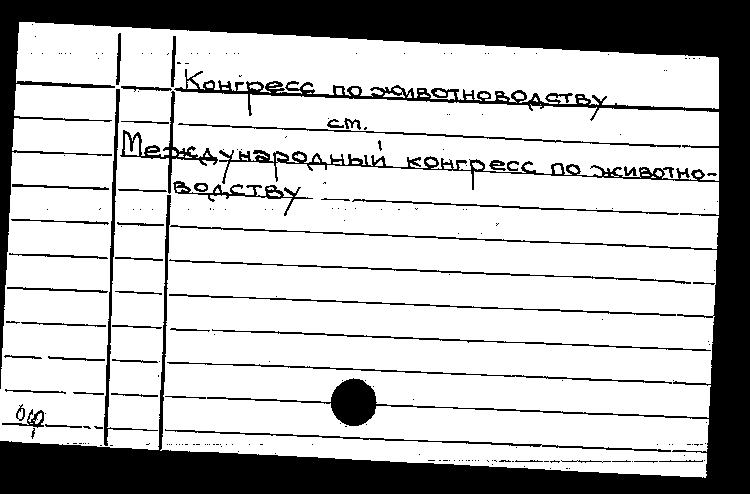 Конгресс по животноводству
см.
Международный конгресс по животно-
водству
оф